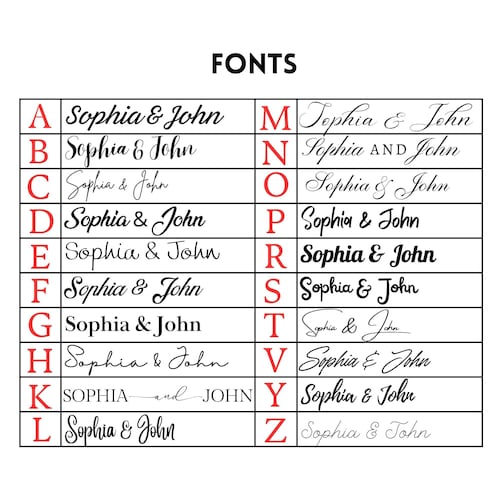 FONTS
A Sophia & John M Sophia & John
B Sophia & John N Sophia AND John
C Sophia & John O Sophia & John
D Sophia & John P Sophia & John
E Sophia & John R Sophia & John
F Sophia & John S Sophia & John
G Sophia & John T Sophia & John
H Sophia & John V Sophia & John
K SOPHIA and JOHN Y Sophia & John
L Sophia & John Z Sophia & John